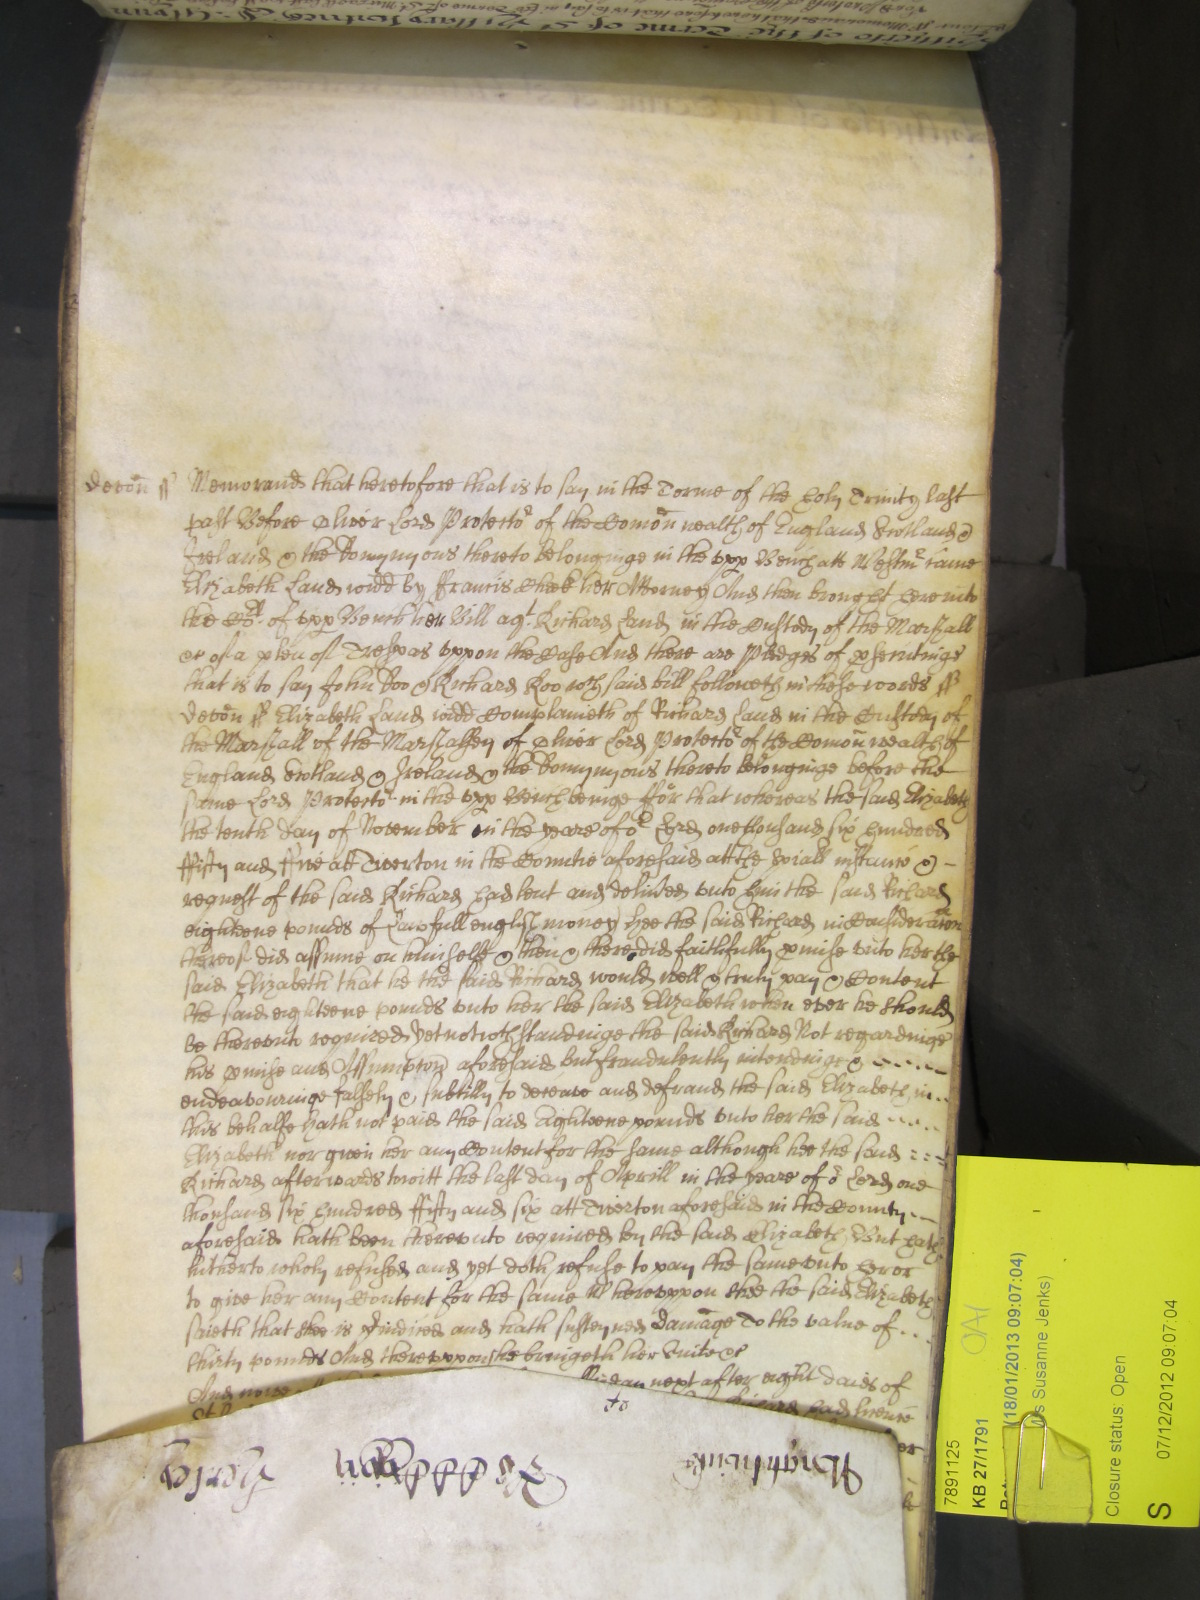 Devon ss Memorand that heretofore that is to say in the Terme of the holy Trinity last
past Before Oliver Lord Protector of the Comon wealth of England Scotland &
Ireland & the Domynyons thereto belonginge in the upp Bench att Westmr came
Elizabeth Land widd by ffrancis Cheeke her Attorney And then brought here into
the Cort of upp Bench her Bill agt Richard Land in the Custody of the Marshall
&c of a plea of Trespas uppon the Case And there are Pledges of psecutinge
that is to say John Doo & Richard Roo wch said bill followeth in these words ss
Devon ss Elizabeth Land widd Complaineth of Richard Land in the Custody of
the Marshall of the Marshalsey of Oliver Lord Protector of the Comon wealth of
England Scotland & Ireland & the Domynyons thereto belonginge before the
same Lord Protector in the upp Bench beinge ffor that whereas the said Elizabeth
the tenth day of November in the yeare of or Lord one thousand six hundred
ffifty and ffive att Tiverton in the Countie aforesaid att the spiall instance & -
request of the said Richard had lent and delived unto him the said Richard
eighteene pounds of Lawfull english money hee the said Richard in Consideracon
thereof did assume on himselfe & then & there did faithfully pmise unto her the
said Elizabeth that he the said Richard would well & truly pay & Content
the said eighteene pounds unto her the said Elizabeth when ever he should
be thereunto required Yet notwthstandinge the said Richard Not regardinge
his pmise and Assumpton aforesaid but fraudulently intendinge &
endeavouringe falsely & subtilly to deceave and defraud the said Elizabeth in
this behalfe hath not paid the said Eighteene pounds unto her the said
Elizabeth nor given her any Content for the same although hee the said
Richard afterwards towitt the last day of Aprill in the yeare of or Lord one
thousand six hundred ffifty and six att Tiverton aforesaid in the County
aforesaid hath been thereunto required by the said Elizabeth But hath
hitherto wholy refused and yet doth refuse to pay the same unto her or
to give her any Content for the same Whereuppon shee the said Elizabeth
saieth that shee is Indired and hath susteyned damage To the value of
thirty pounds And thereuppon she bringeth her Suite &c
And nowe next after eight daies of
7891125
KB 27/1791
(18/01/2013 09:07:04)
Susanne Jenks)
Closure status: Open
S 07/12/2012 09:07:04